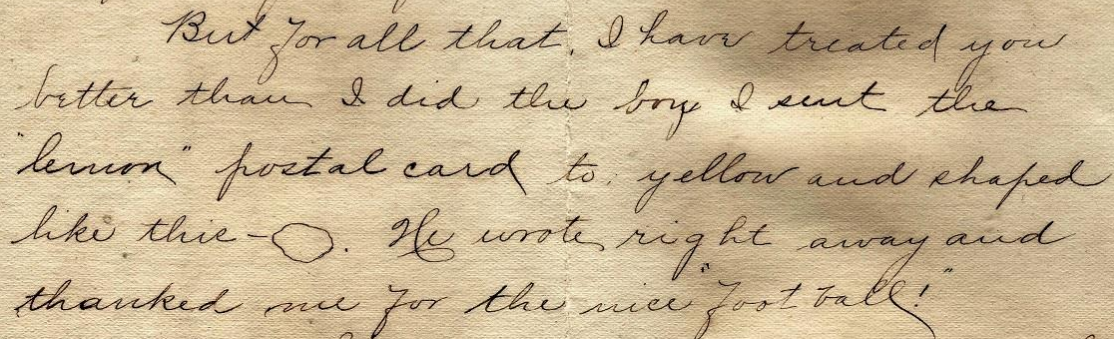 But for all that, I have treated you
better than I did the boy I sent the
"lemon" postal card to, yellow and shaped
like this - . He wrote right away and
thanked me for the nice "foot ball!"